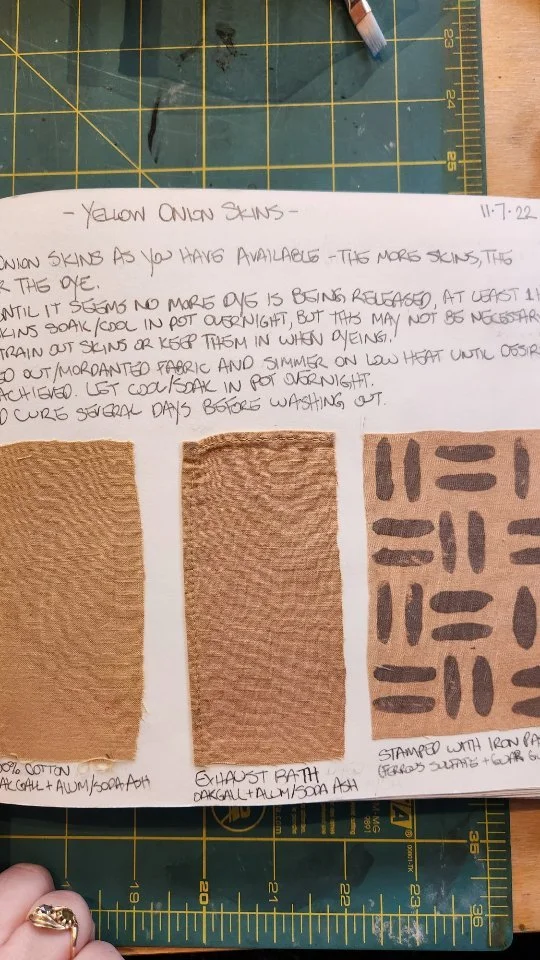 - YELLOW ONION SKINS -
11.7.22
ONION SKINS AS YOU HAVE AVAILABLE - THE MORE SKINS, THE
R THE DYE.
UNTIL IT SEEMS NO MORE DYE IS BEING RELEASED, AT LEAST 1
KINS SOAK/COOL IN POT OVERNIGHT, BUT THIS MAY NOT BE NECESSAR
TRAIN OUT SKINS OR KEEP THEM IN WHEN DYEING.
ED OUT/MORDANTED FABRIC AND SIMMER ON LOW HEAT UNTIL DESIR
ACHIEVED. LET COOL/SOAK IN POT OVERNIGHT.
D CURE SEVERAL DAYS BEFORE WASHING OUT.
00% COTTON
OAKGALL + ALUM/SODA ASH
EXHAUST BATH
OAKGALL + ALUM/SODA ASH
STAMPED WITH IRON PA
(FERROUS SULFATE + GUAR GU
23
24
25
19
20
21
22
35
36